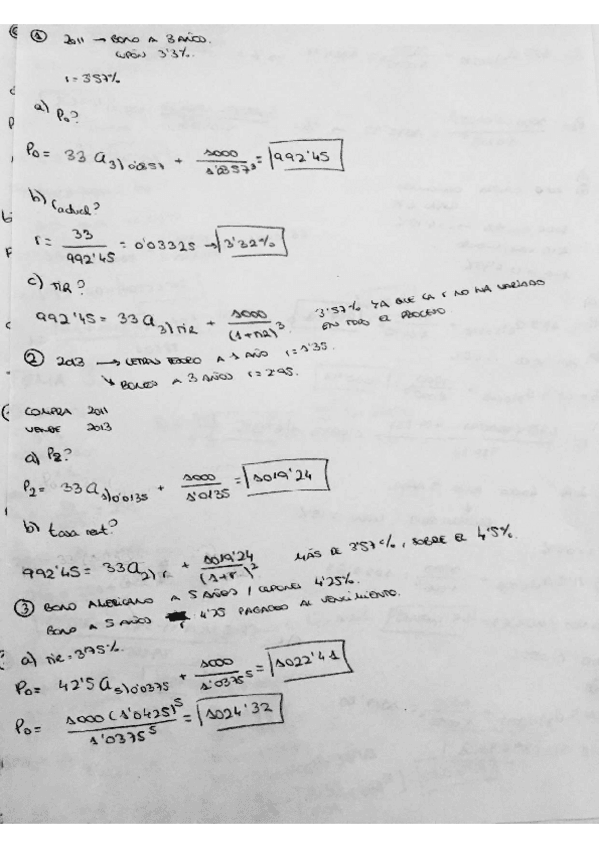 ① 2011 → BONO A 3 AÑOS.
CUPÓN 3'3%
r = 3'57%
a) P₀?
P₀ = 33 a 3⌉0'0357 + 1000/1'0357³ = 992'45
b) r actual?
r = 33/992'45 = 0'03325 → 3'32%
c) TIR?
992'45 = 33 a 3⌉TIR + 1000/(1+TIR)³ 3'57% YA QUE LA r NO HA VARIADO
EN TODO EL PROCESO
② 2013 → LETRAS TESORO A 1 AÑO r = 1'35.
↘ BONOS A 3 AÑOS r = 2'95.
COMPRA 2011
VENDE 2013
a) P₂?
P₂ = 33 a 1⌉0'0135 + 1000/1'0135 = 1019'24
b) tasa rent?
992'45 = 33 a 2⌉r + 1019'24/(1+r)² MÁS DE 3'57%, SOBRE EL 4'5%.
③ BONO AMERICANO A 5 AÑOS / CUPONES 4'25%.
BONO A 5 AÑOS 4'25 PAGADEO AL VENCIMIENTO.
a) TIR = 3'75%.
P₀ = 42'5 a 5⌉0'0375 + 1000/1'0375⁵ = 1022'41
P₀ = 1000(1'0425)⁵/1'0375⁵ = 1024'32